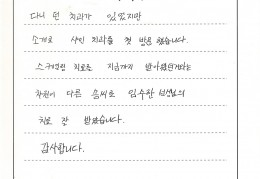 다니던 치과가 있었지만
소개로 사인 치과를 첫 방문 했습니다.
스케일링 치료는 지금까지 받아왔던거와는
차원이 다른 솜씨로 임수환 선생님의
치료 잘 받았습니다.
감사합니다.